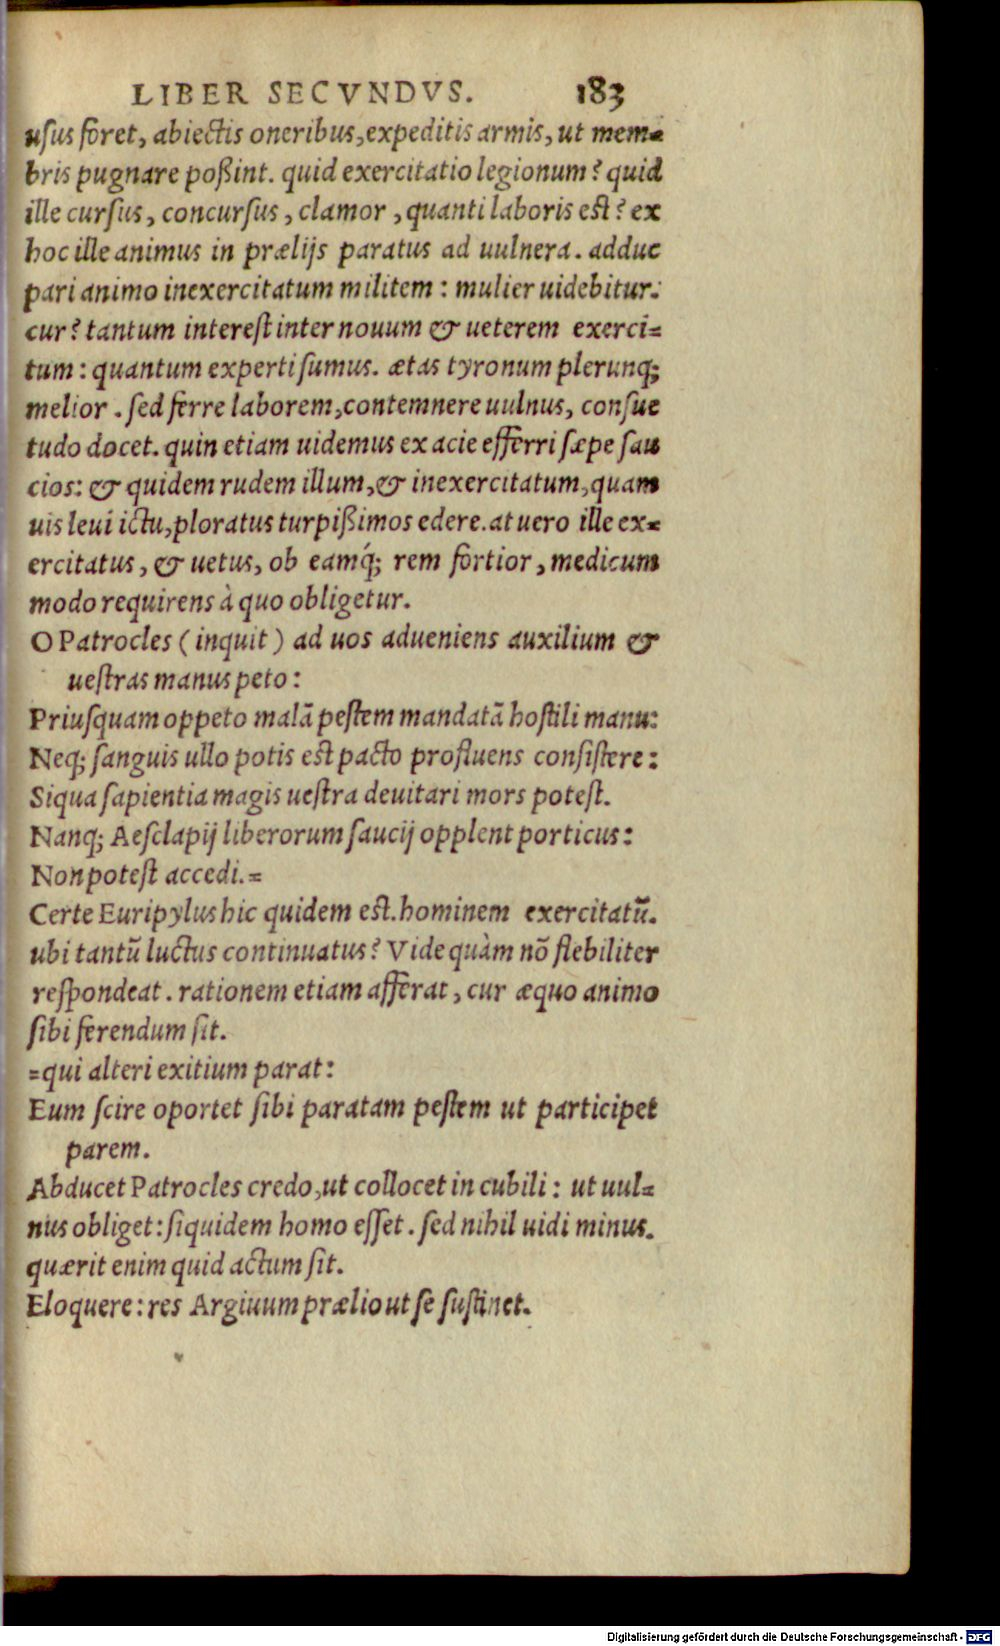 LIBER SECVNDVS. 183
uſus foret, abiectis oneribus, expeditis armis, ut mem=
bris pugnare poßint. quid exercitatio legionum? quid
ille curſus, concurſus, clamor, quanti laboris est? ex
hoc ille animus in prælijs paratus ad uulnera. adduc
pari animo inexercitatum militem: mulier uidebitur.
cur? tantum intereſt inter nouum & ueterem exerci=
tum: quantum experti ſumus. ætas tyronum plerunq;
melior. ſed ferre laborem, contemnere uulnus, conſue
tudo docet. quin etiam uidemus ex acie efferri ſæpe ſau
cios: & quidem rudem illum, & inexercitatum, quam
uis leui ictu, ploratus turpißimos edere. at uero ille ex=
ercitatus, & uetus, ob eamq́; rem fortior, medicum
modo requirens à quo obligetur.
O Patrocles (inquit) ad uos adueniens auxilium &
ueſtras manus peto:
Priuſquam oppeto malã peſtem mandatã hoſtili manu:
Neq; ſanguis ullo potis est pacto profluens conſiſtere:
Siqua ſapientia magis ueſtra deuitari mors poteſt.
Nanq; Aeſclapij liberorum ſaucij opplent porticus:
Non poteſt accedi.=
Certe Euripylus hic quidem est. hominem exercitatũ.
ubi tantũ luctus continuatus? Vide quàm nõ flebiliter
reſpondeat. rationem etiam afferat, cur æquo animo
ſibi ferendum ſit.
=qui alteri exitium parat:
Eum ſcire oportet ſibi paratam peſtem ut participet
parem.
Abducet Patrocles credo, ut collocet in cubili: ut uul=
nus obliget: ſiquidem homo eſſet. ſed nihil uidi minus.
quærit enim quid actum ſit.
Eloquere: res Argiuum prælio ut ſe ſuſtinet.
Digitalisierung gefördert durch die Deutsche Forschungsgemeinschaft - DFG